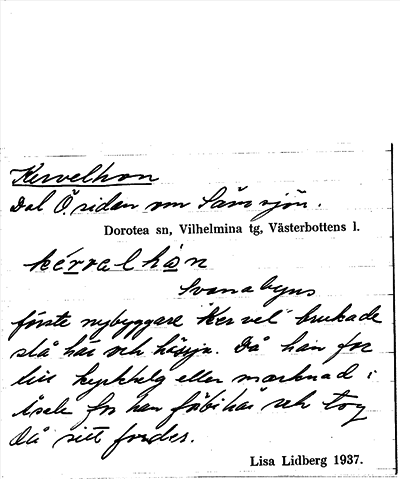 Kervelhon
Dal Ö. sidan om Särvsjön.
Dorotea sn, Vilhelmina tg, Västerbottens l.
kérvalhån
Svanabyns
förste nybyggare Kervel brukade
slå här och hässja. Då han for
till kyrkhelg eller marknad i
Åsele for han förbi här och tog
då sitt fordes.
Lisa Lidberg 1937.